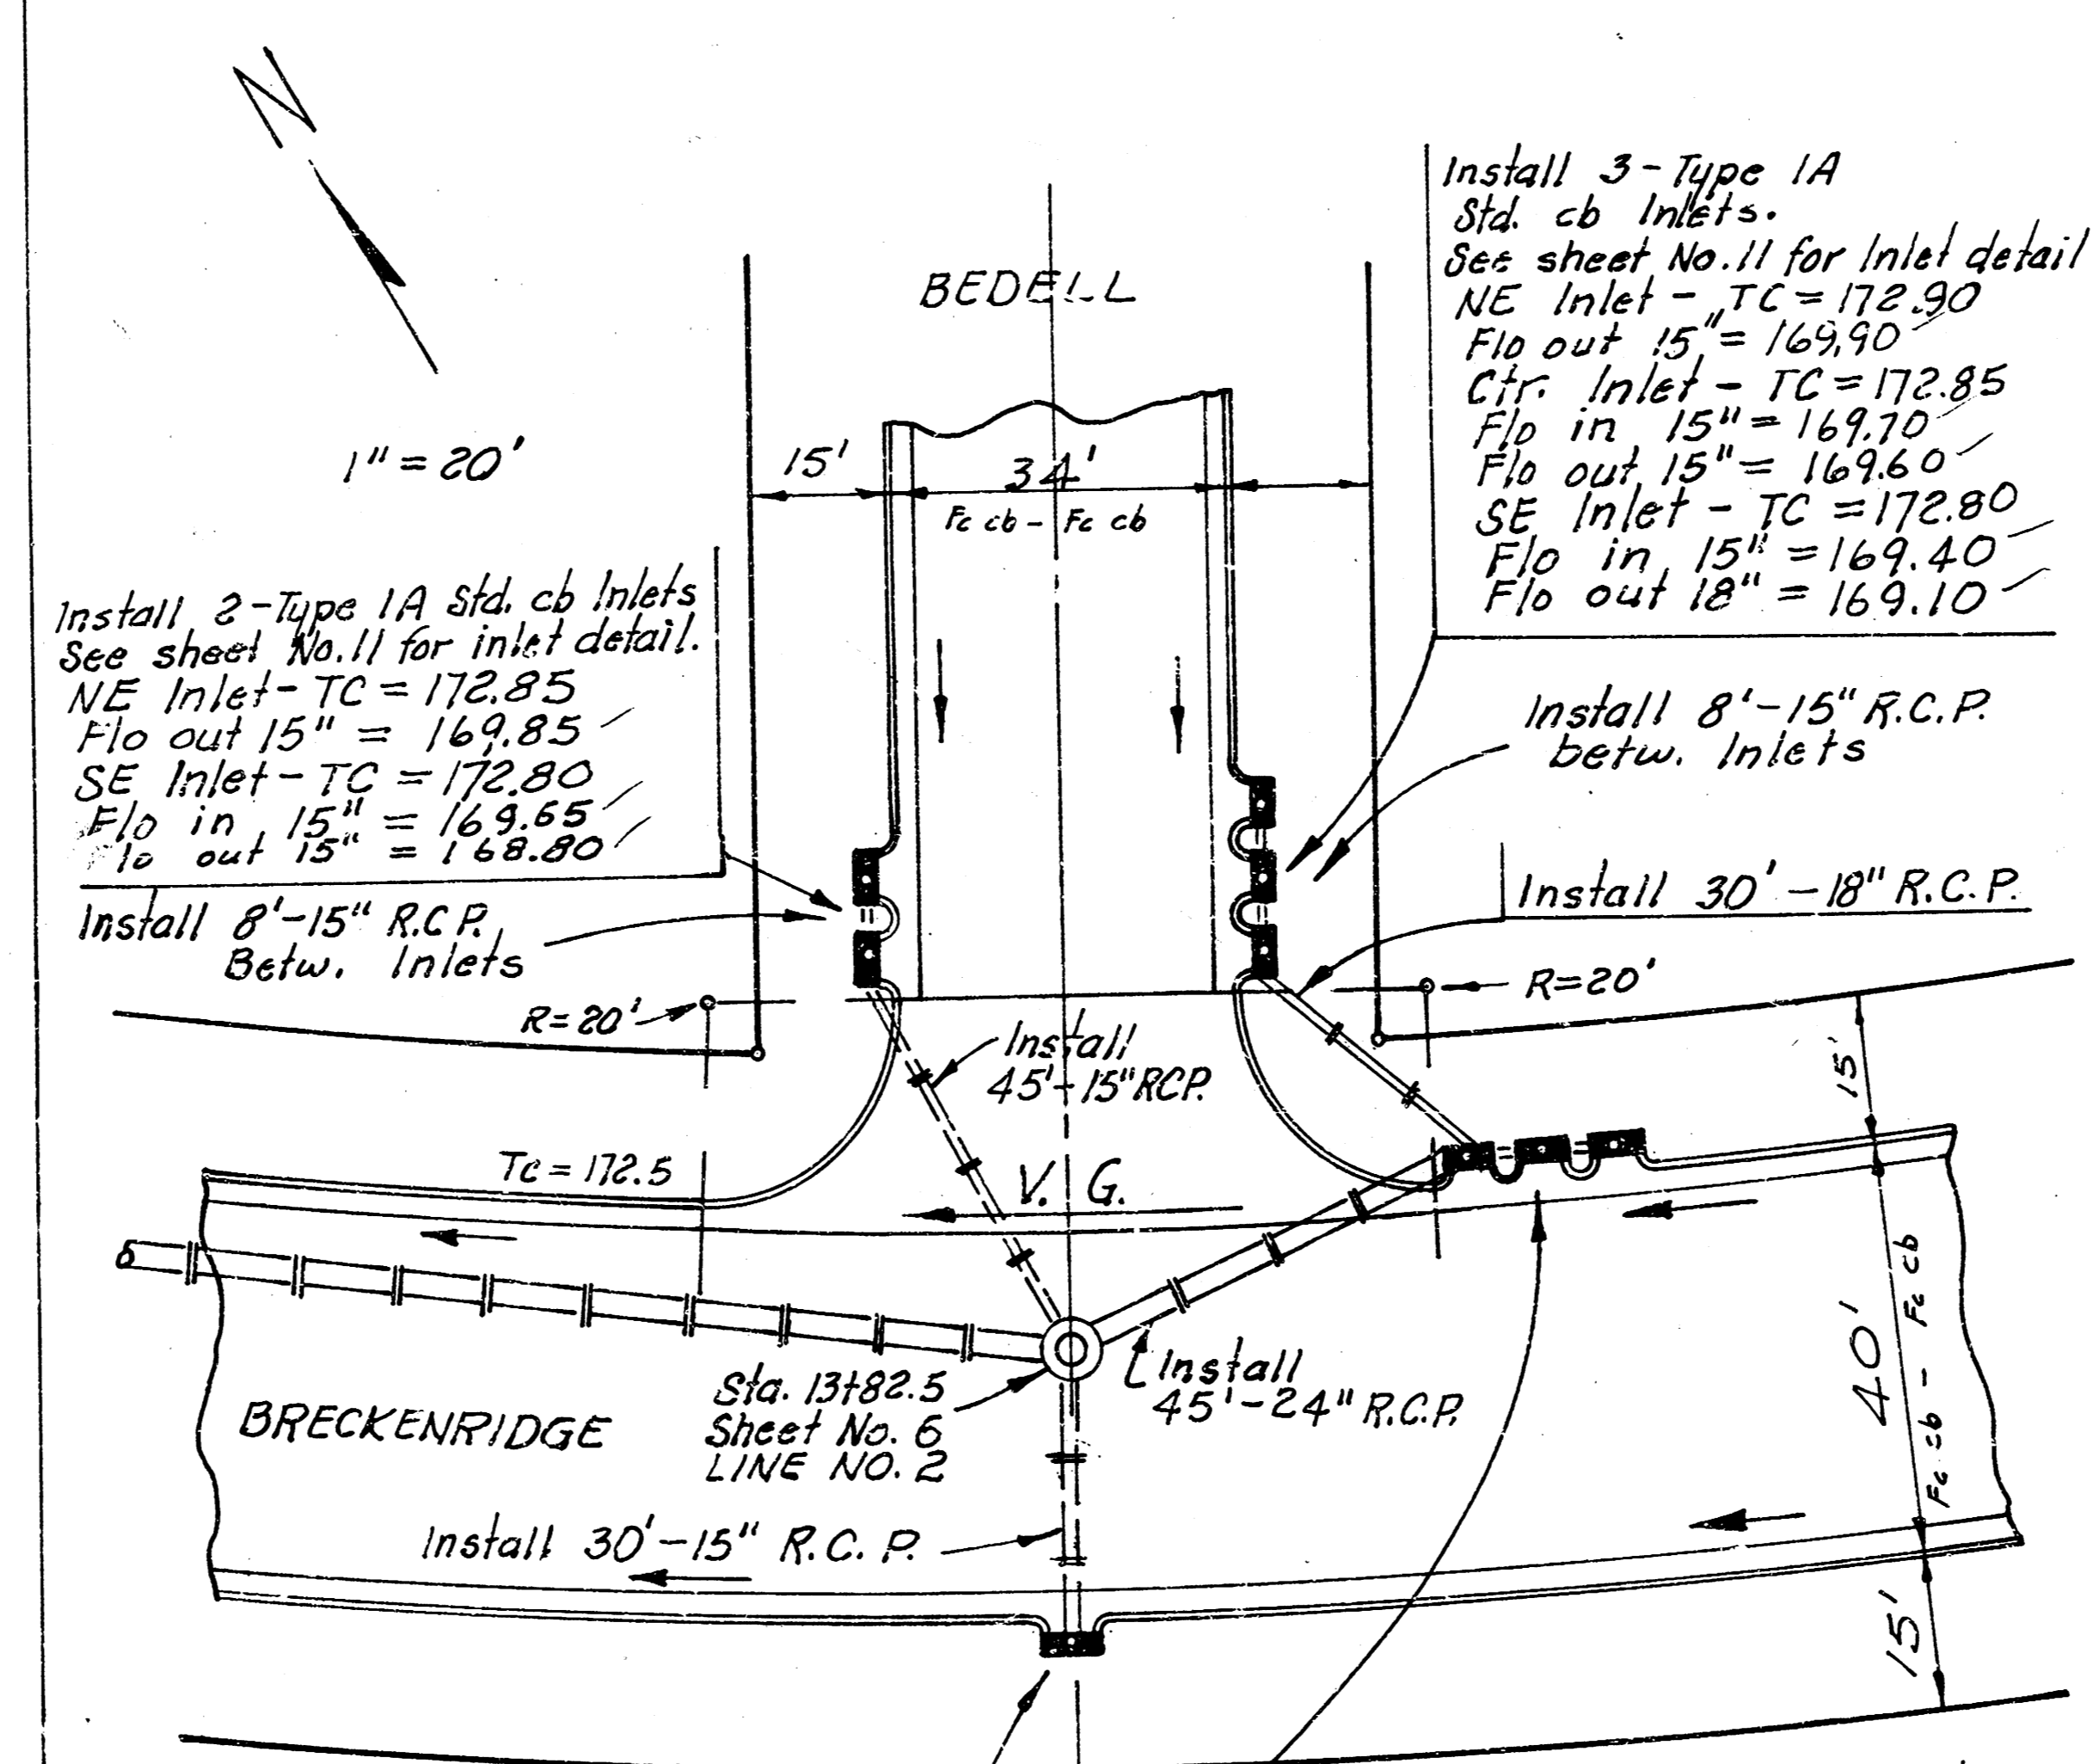 N
1" = 20'
BEDELL
15'
34'
Fc cb - Fc cb
Install 3 - Type 1A
Std. cb Inlets.
See sheet No. 11 for Inlet detail
NE Inlet - TC = 172.90
Flo out 15" = 169.90
Ctr. Inlet - TC = 172.85
Flo in 15" = 169.70
Flo out 15" = 169.60
SE Inlet - TC = 172.80
Flo in 15" = 169.40
Flo out 18" = 169.10
Install 2-Type 1A Std. cb Inlets
See sheet No. 11 for inlet detail.
NE Inlet - TC = 172.85
Flo out 15" = 169.85
SE Inlet - TC = 172.80
Flo in 15" = 169.65
Flo out 15" = 168.80
Install 8'-15" R.C.P.
Betw. Inlets
Install 8'-15" R.C.P.
betw. Inlets
Install 30'-18" R.C.P.
R=20'
R=20'
Install
45'-15" RCP.
15'
Tc = 172.5
V. G.
40'
Fc cb - Fc cb
Install
45'-24" R.C.P.
Sta. 13+82.5
Sheet No. 6
LINE NO. 2
BRECKENRIDGE
Install 30'-15" R.C.P.
15'